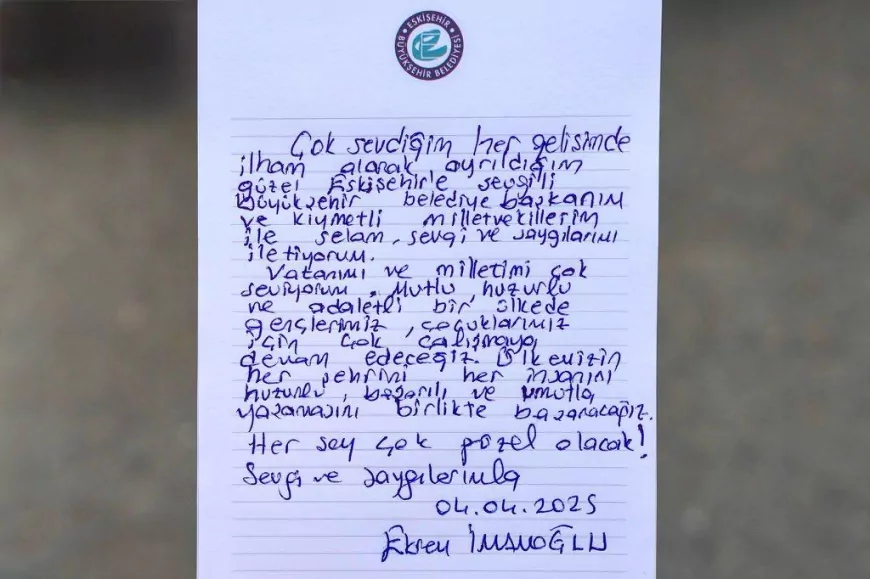 ESKİŞEHİR
BÜYÜKŞEHİR BELEDİYESİ
Çok sevdiğim her gelişimde
ilham alarak ayrıldığım
güzel Eskişehir'e sevgili
Büyükşehir belediye başkanım
ve kıymetli milletvekillerim
ile selam, sevgi ve saygılarımı
iletiyorum.
Vatanımı ve milletimi çok
seviyorum. Mutlu, huzurlu
ve adaletli bir ülkede
gençlerimiz, çocuklarımız
için çok çalışmaya
devam edeceğiz. Ülkemizin
her şehrini her insanını
huzurlu, başarılı ve umutla
yaşamasını birlikte başaracağız.
Her şey çok güzel olacak!
Sevgi ve saygılarımla
04.04.2025
Ekrem İMAMOĞLU